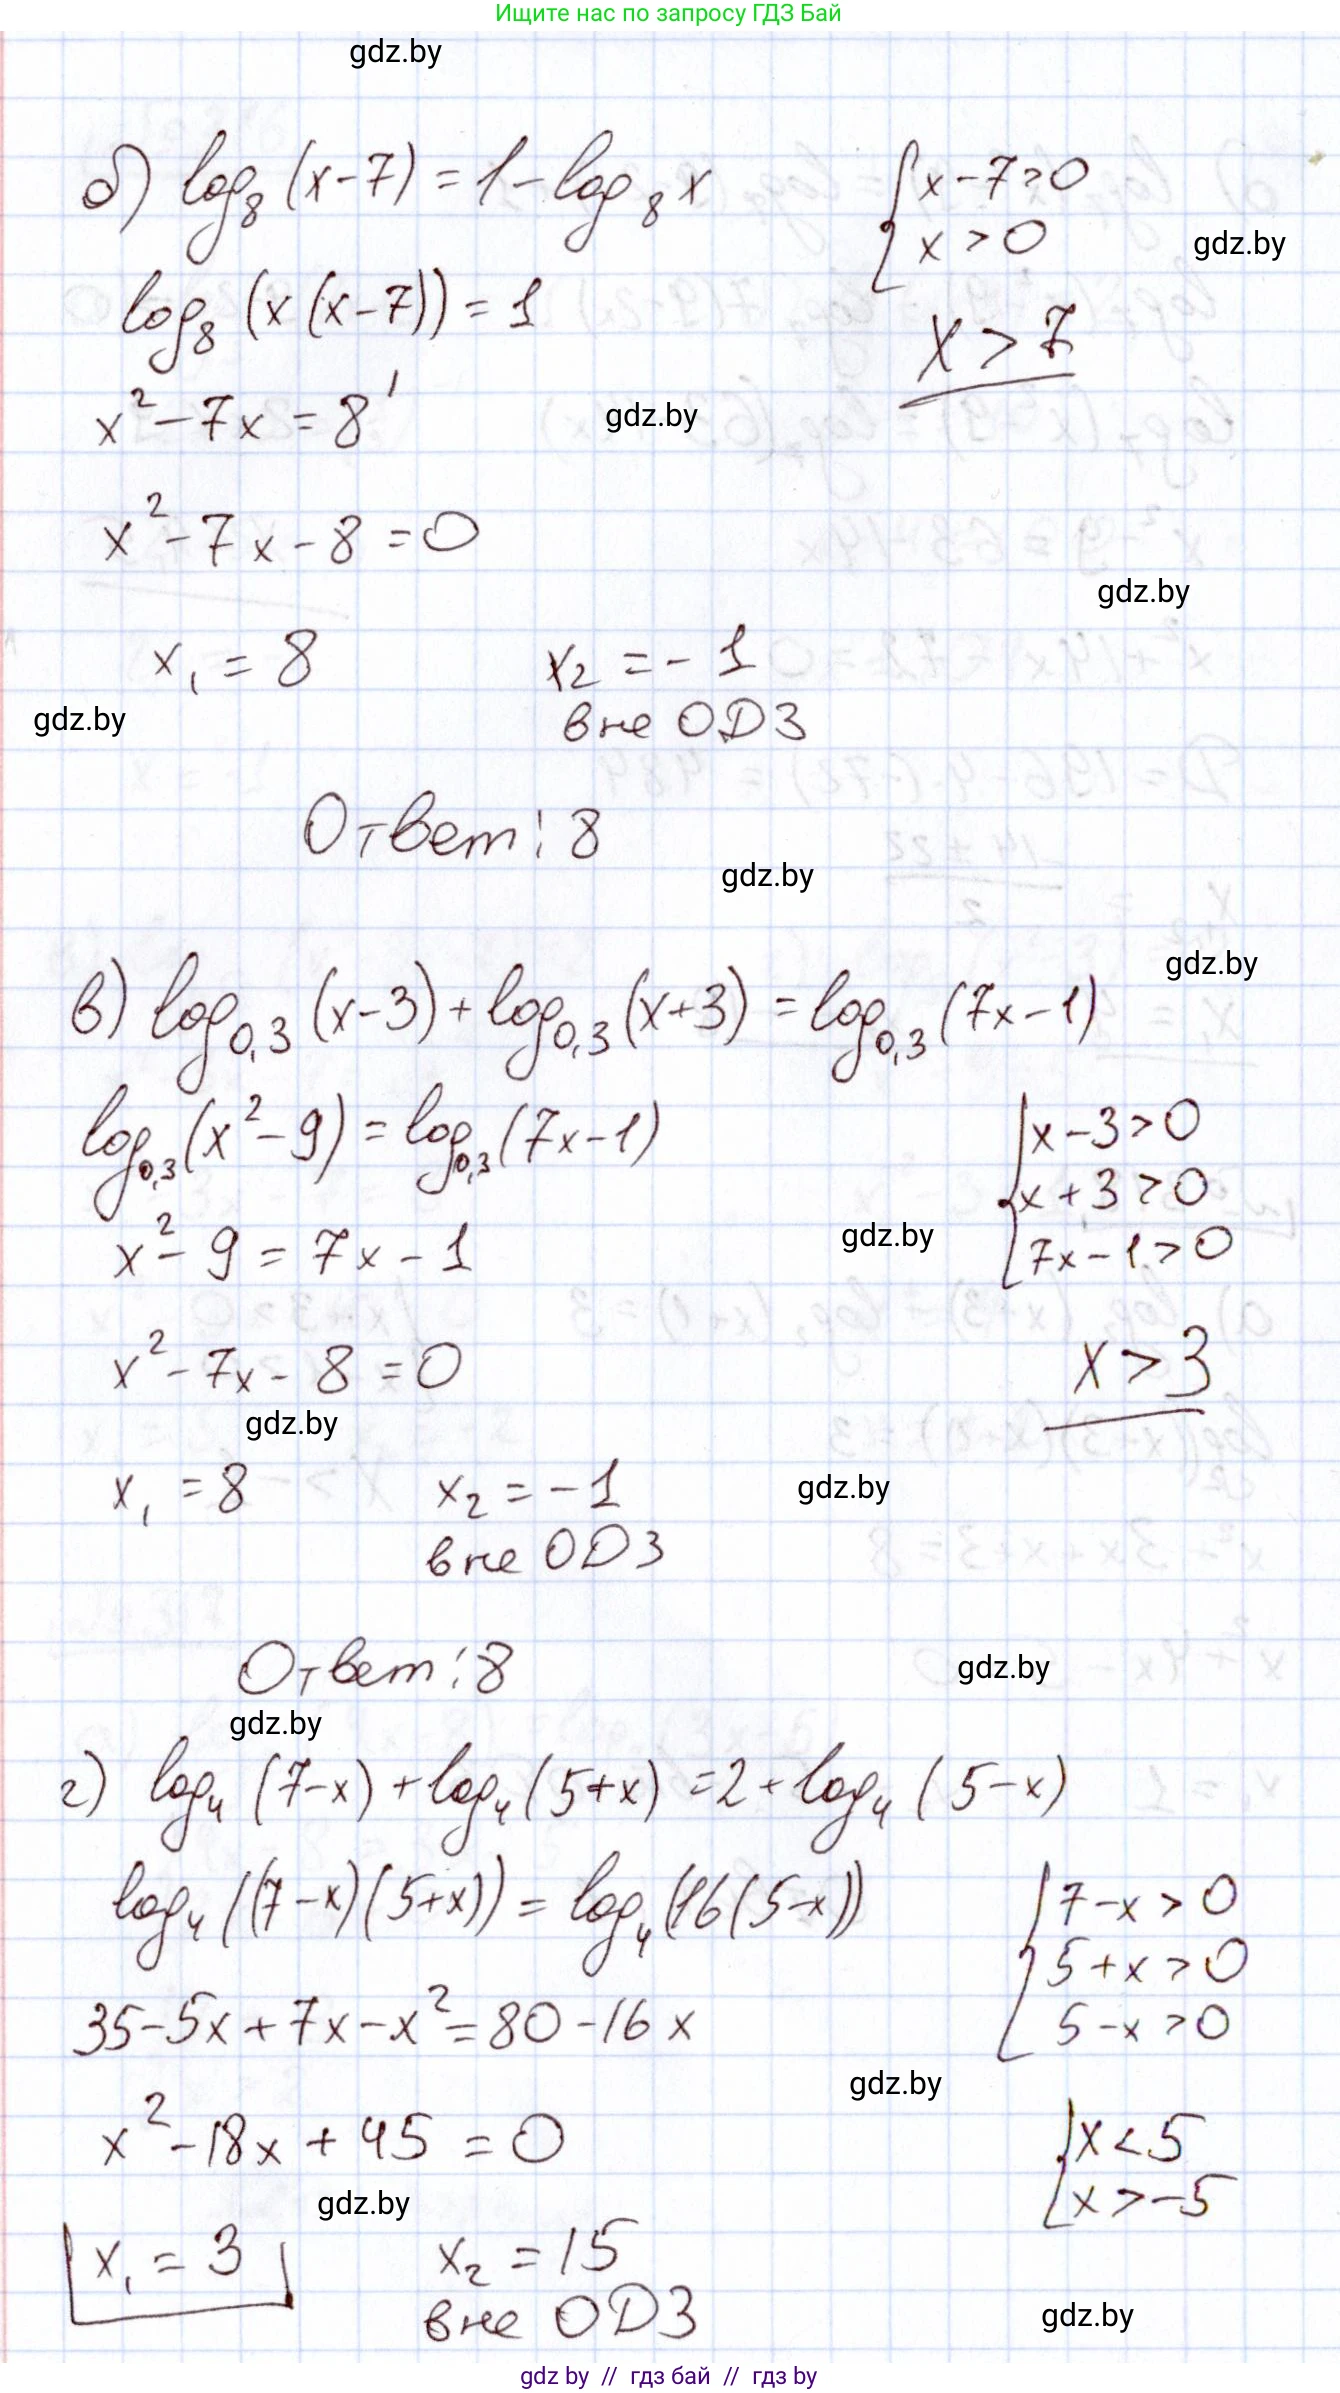 Ищите нас по запросу ГДЗ Бай
gdz.by
б) log₈ (x-7) = 1 - log₈ x
{ x-7>0
x > 0
gdz.by
log₈ (x (x-7)) = 1
x > 7
x² - 7x = 8¹
gdz.by
x² - 7x - 8 = 0
gdz.by
x₁ = 8
x₂ = -1
вне ОДЗ
gdz.by
Ответ: 8
gdz.by
gdz.by
в) log₀,₃ (x-3) + log₀,₃ (x+3) = log₀,₃ (7x-1)
log₀,₃ (x²-9) = log₀,₃ (7x-1)
{ x-3>0
x+3>0
7x-1>0
gdz.by
x² - 9 = 7x - 1
x² - 7x - 8 = 0
x > 3
gdz.by
x₁ = 8
x₂ = -1
вне ОДЗ
gdz.by
Ответ: 8
gdz.by
gdz.by
г) log₄ (7-x) + log₄ (5+x) = 2 + log₄ (5-x)
log₄ ((7-x)(5+x)) = log₄ (16(5-x))
{ 7-x > 0
5+x > 0
5-x > 0
35-5x+7x-x² = 80-16x
gdz.by
x² - 18x + 45 = 0
{ x < 5
x > -5
gdz.by
x₁ = 3
x₂ = 15
вне ОДЗ
gdz.by
gdz by // гдз бай // гдз by